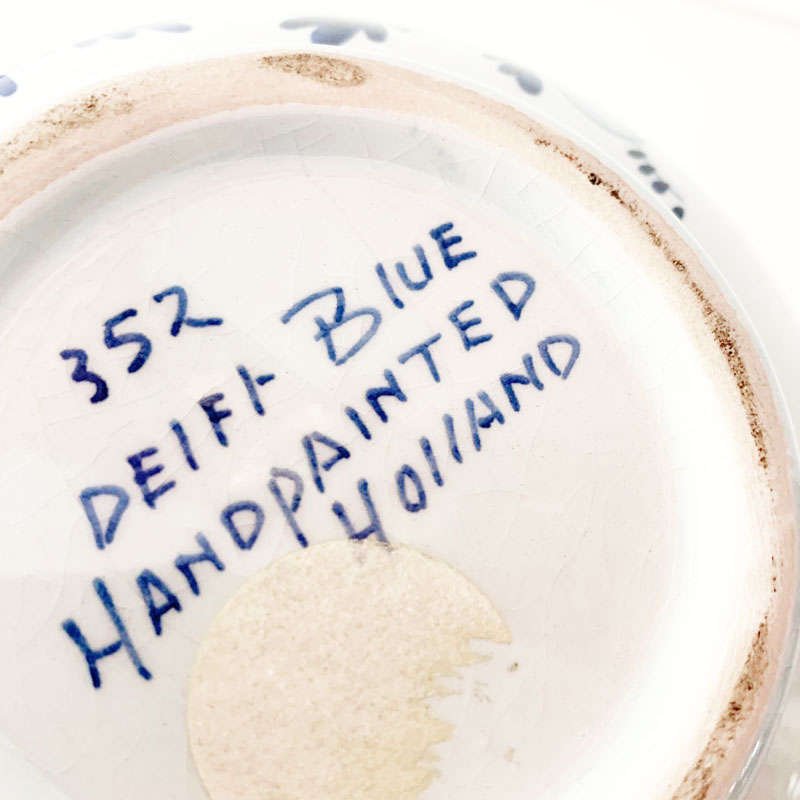 352
DElFt BlUE
HANDPAINTED
HOllAND